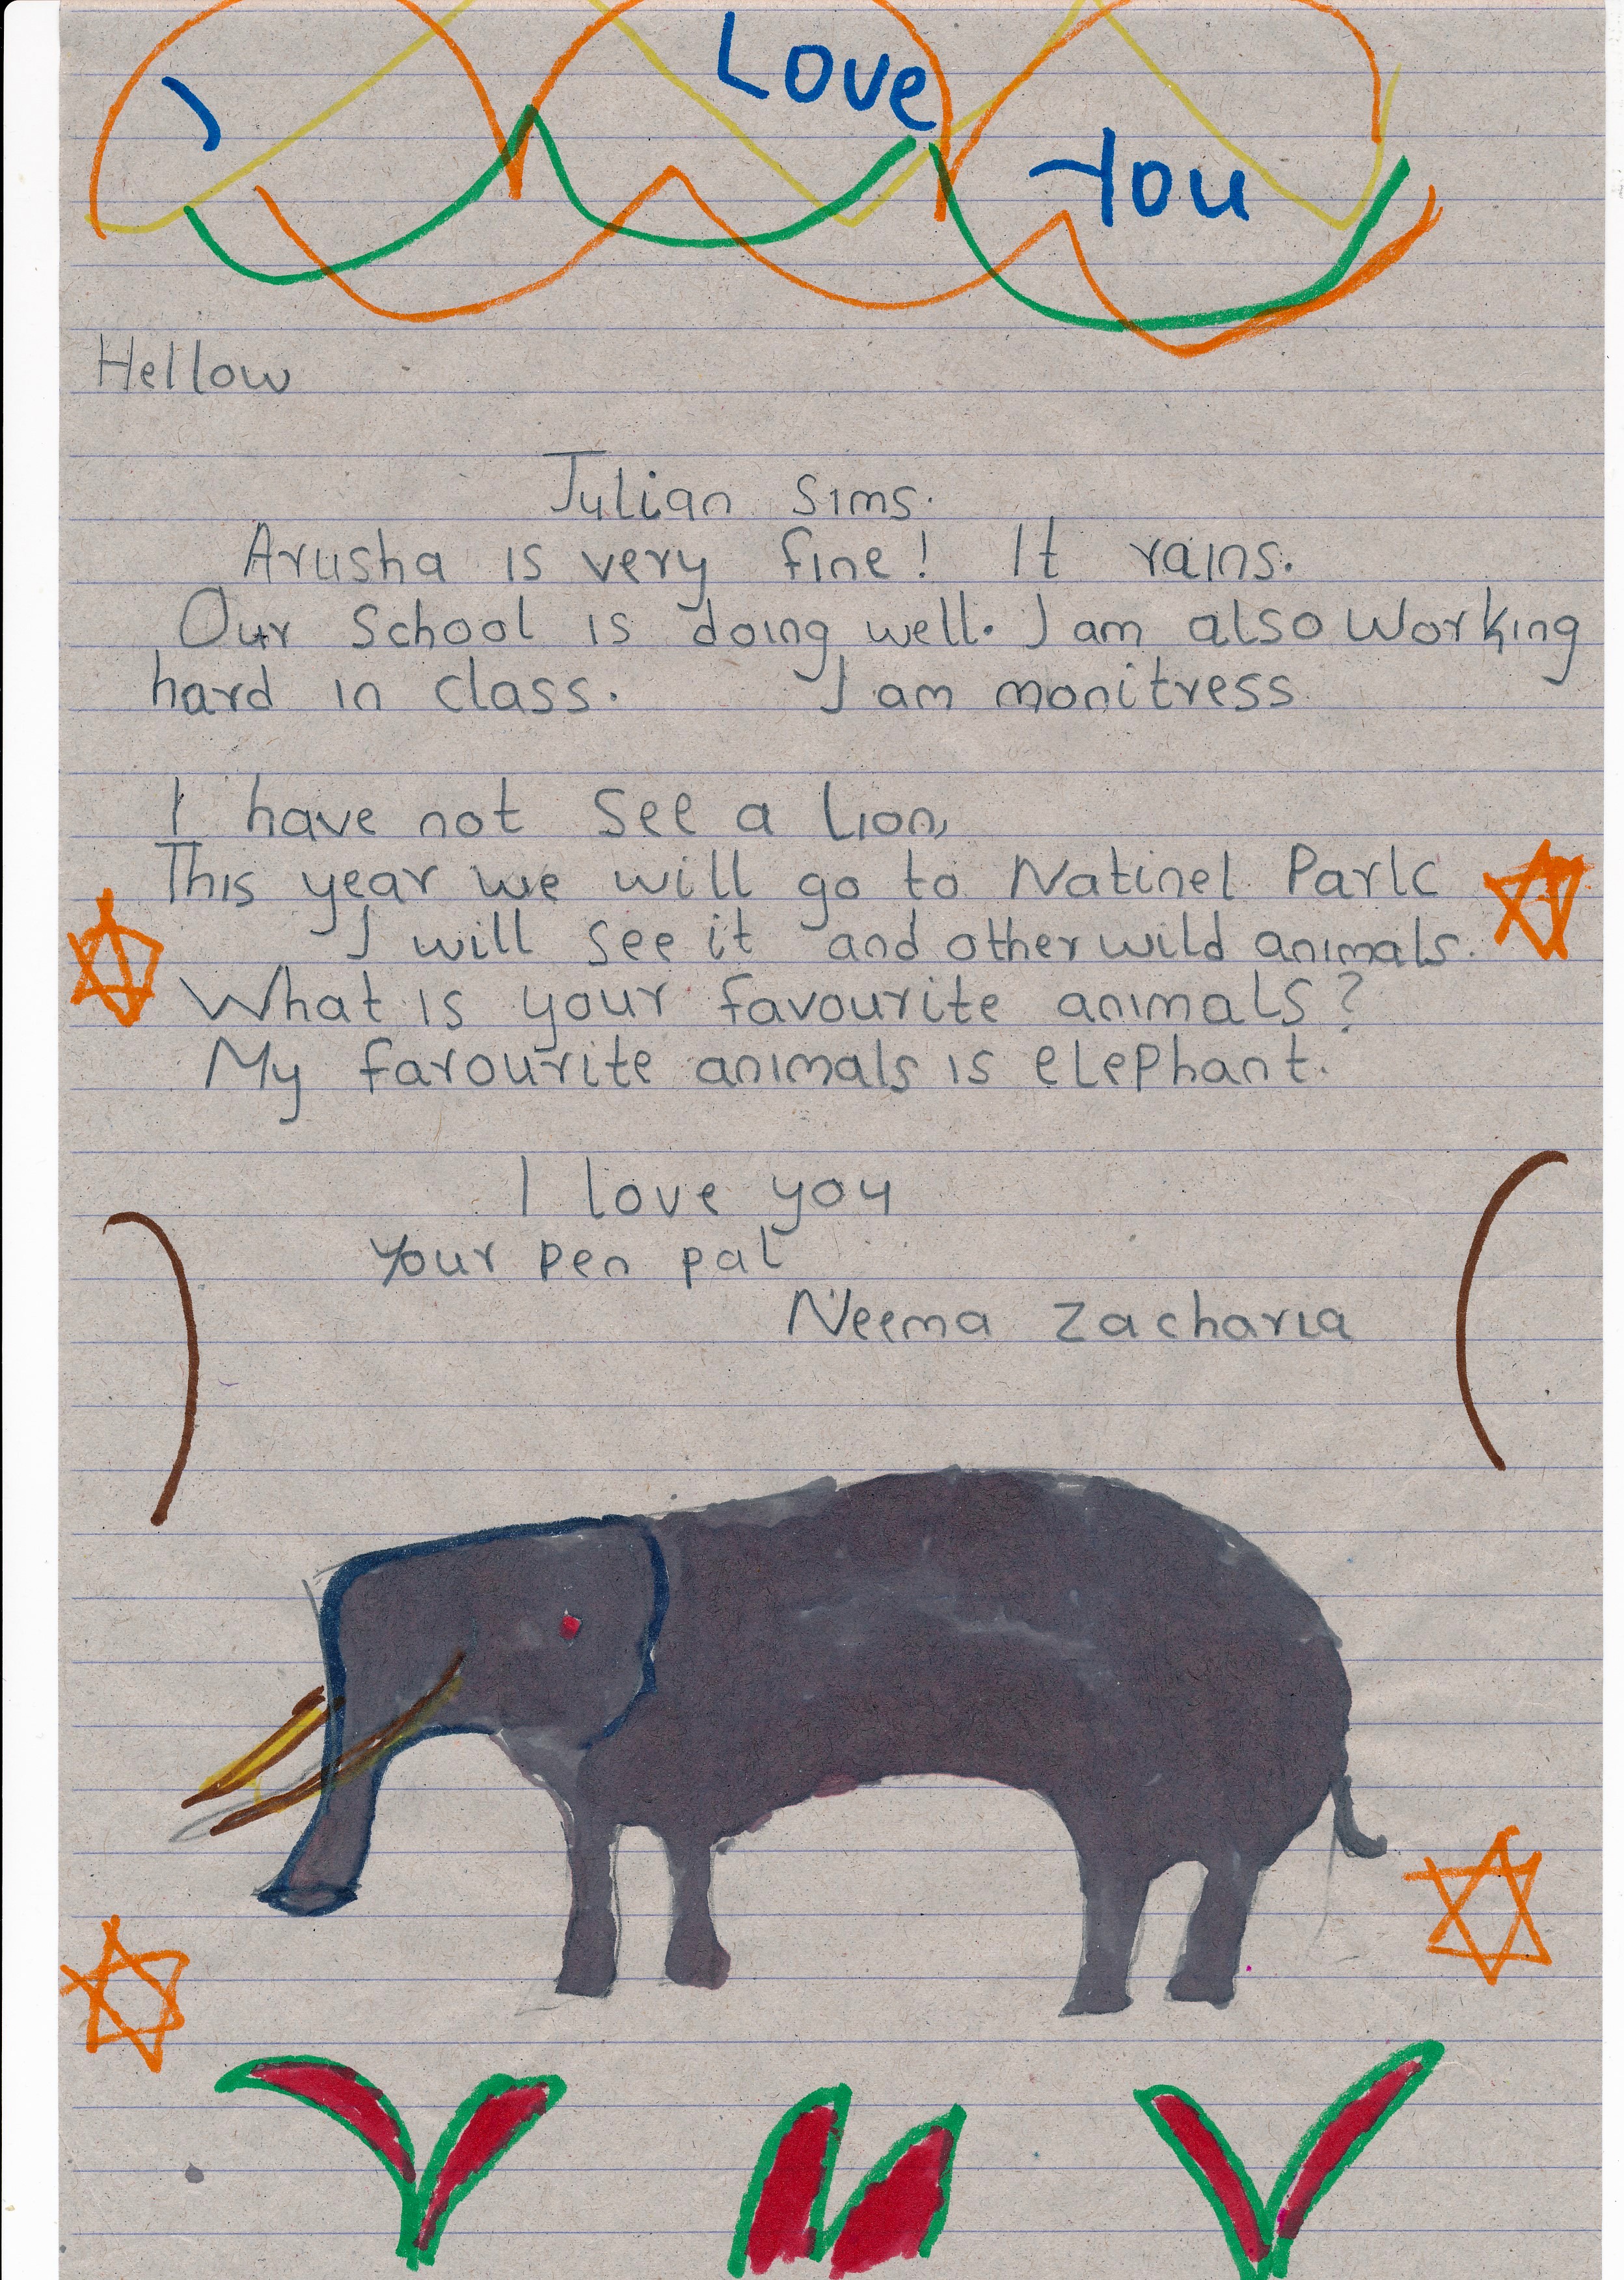 I Love You
Hellow
Julian Sims.
Arusha is very fine! It rains.
Our School is doing well. I am also Working
hard in class. I am monitress
I have not see a Lion,
This year we will go to Natinel Park
I will see it and other wild animals.
What is your favourite animals?
My favourite animals is elephant.
I love you
Your pen pal
Neema Zacharia